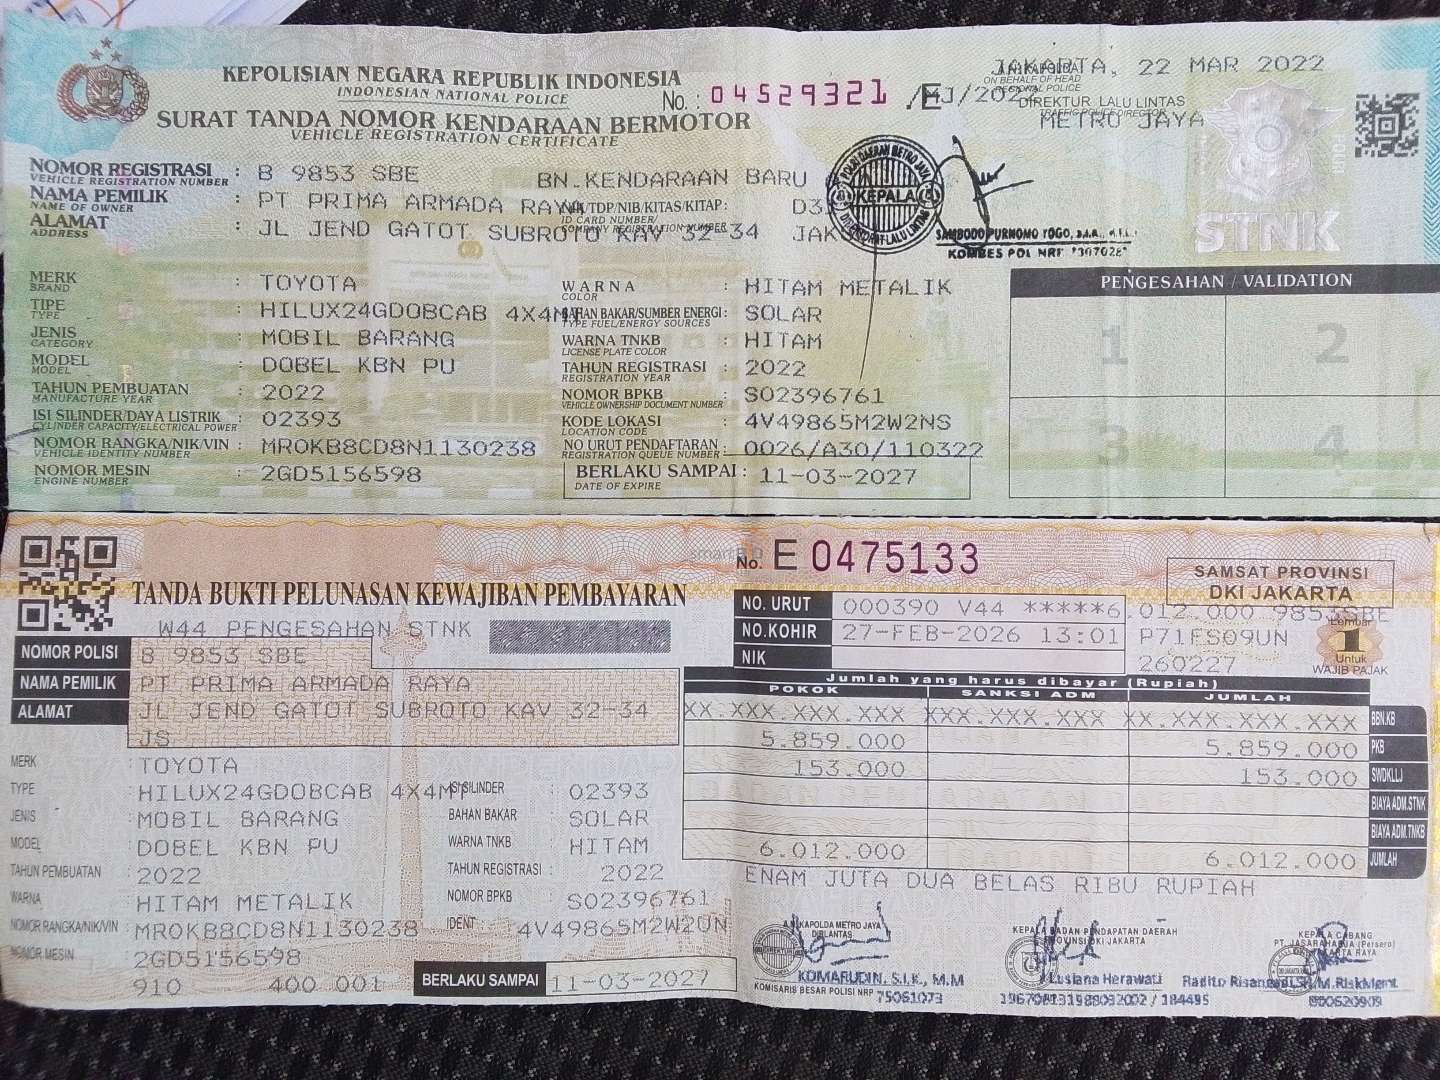 KEPOLISIAN NEGARA REPUBLIK INDONESIA
INDONESIAN NATIONAL POLICE
No. : 04529321 /MJ/202
SURAT TANDA NOMOR KENDARAAN BERMOTOR
VEHICLE REGISTRATION CERTIFICATE
JAKARTA, 22 MAR 2022
ON BEHALF OF HEAD
REGIONAL POLICE
DIREKTUR LALU LINTAS
METRO JAYA
NOMOR REGISTRASI : B 9853 SBE BN.KENDARAAN BARU
VEHICLE REGISTRATION NUMBER
NAMA PEMILIK : PT PRIMA ARMADA RAYA
NAME OF OWNER
/TDP/NIB/KITAS/KITAP:
ID CARD NUMBER/
COMPANY REGISTRATION NUMBER
ALAMAT : JL JEND GATOT SUBROTO KAV 32-34
ADDRESS
KEPALA
SAMBODO PURNOMO YOGO,
KOMBES POL NRP
STNK
MERK : TOYOTA
BRAND
TIPE : HILUX24GDOBCAB 4X4MT
TYPE
JENIS : MOBIL BARANG
CATEGORY
MODEL : DOBEL KBN PU
MODEL
TAHUN PEMBUATAN : 2022
MANUFACTURE YEAR
ISI SILINDER/DAYA LISTRIK : 02393
CYLINDER CAPACITY/ELECTRICAL POWER
NOMOR RANGKA/NIK/VIN : MROKB8CD8N1130238
VEHICLE IDENTITY NUMBER
NOMOR MESIN : 2GD5156598
ENGINE NUMBER
WARNA : HITAM METALIK
COLOR
BAHAN BAKAR/SUMBER ENERGI : SOLAR
TYPE FUEL/ENERGY SOURCES
WARNA TNKB : HITAM
LICENSE PLATE COLOR
TAHUN REGISTRASI : 2022
REGISTRATION YEAR
NOMOR BPKB : S02396761
VEHICLE OWNERSHIP DOCUMENT NUMBER
KODE LOKASI : 4V49865M2W2NS
LOCATION CODE
NO URUT PENDAFTARAN : 0026/A30/110322
REGISTRATION QUEUE NUMBER
BERLAKU SAMPAI : 11-03-2027
DATE OF EXPIRE
PENGESAHAN / VALIDATION
1 2
3 4
No. E 0475133
TANDA BUKTI PELUNASAN KEWAJIBAN PEMBAYARAN
SAMSAT PROVINSI
DKI JAKARTA
W44 PENGESAHAN STNK
NO. URUT 000390 V44 *****6.012.000 9853SBE
NO.KOHIR 27-FEB-2026 13:01 P71FS09UN
NIK 260227
Lembar
1
Untuk
WAJIB PAJAK
NOMOR POLISI B 9853 SBE
NAMA PEMILIK PT PRIMA ARMADA RAYA
ALAMAT JL JEND GATOT SUBROTO KAV 32-34
JS
MERK : TOYOTA
TYPE : HILUX24GDOBCAB 4X4MT
JENIS : MOBIL BARANG
MODEL : DOBEL KBN PU
TAHUN PEMBUATAN : 2022
WARNA : HITAM METALIK
NOMOR RANGKA/NIK/VIN : MROKB8CD8N1130238
NOMOR MESIN : 2GD5156598
910 400 001
ISI SILINDER : 02393
BAHAN BAKAR : SOLAR
WARNA TNKB : HITAM
TAHUN REGISTRASI : 2022
NOMOR BPKB : S02396761
IDENT : 4V49865M2W2UN
BERLAKU SAMPAI 11-03-2027
Jumlah yang harus dibayar (Rupiah)
POKOK SANKSI ADM JUMLAH
XX.XXX.XXX.XXX XXX.XXX.XXX.XXX XX.XXX.XXX.XXX BBN.KB
5.859.000 5.859.000 PKB
153.000 153.000 SWDKLLJ
BIAYA ADM.STNK
BIAYA ADM.TNKB
6.012.000 6.012.000 JUMLAH
ENAM JUTA DUA BELAS RIBU RUPIAH
A.N.KAPOLDA METRO JAYA
DIRLANTAS
KOMARUDIN, S.I.K., M.M
KOMISARIS BESAR POLISI NRP 75061073
KEPALA BADAN PENDAPATAN DAERAH
PROVINSI DKI JAKARTA
Lusiana Herawati
196708131988032002 / 184495
KEPALA CABANG
PT. JASARAHARJA (Persero)